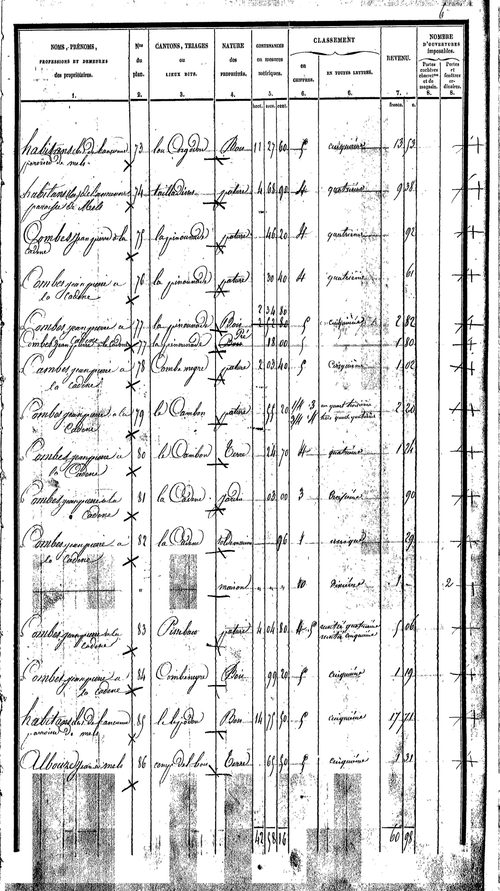 6
NOMS, PRÉNOMS, PROFESSIONS ET DEMEURES des propriétaires. | Nos du plan. | CANTONS, TRIAGES ou LIEUX DITS. | NATURE des PROPRIÉTÉS. | CONTENANCES en mesures métriques. | CLASSEMENT en CHIFFRES. | EN TOUTES LETTRES. | REVENU. | NOMBRE D'OUVERTURES imposables.
Portes cochères et de magasin. | Portes et fenêtres ordinaires.
1. | 2. | 3. | 4. | 5. | 6. | 6. | 7. | 8. | 8.
hect. | ares | cent. | francs. | c.
habitans 73 Bois 11 27 60 5 cinquième 13 53
paroisse de mels
habitans 74 pature 4 68 90 4 quatrième 9 38
paroisse de Mels
Combes jean pierre de la 75 la pinouzade pature 46 20 4 quatrième 92
cadène
Combes jean pierre a 76 la pinouzade pature 30 40 4 quatrième 61
la cadène
2 34 80
Combes jean pierre a 77 la pinouzade Bois 5 cinquième 2 82
Combes jean pierre la cadène 77 la pinouzade 18 00 5 1 80
Combes jean pierre a 78 Combe negre pature 2 03 40 5 Cinquième 1 02
la cadène
Combes jean pierre a la 79 le Cambon pature 55 20 1/4 3 un quart troisième 2 20
Cadène 3/4 4 trois quart quatrième
Combes jean pierre a 80 le Cambon Terre 24 70 4 quatrième 1 24
la Cadène
Combes jean pierre a la 81 la Cadène jardin 03 00 3 troisième 90
Cadène
Combes jean pierre a 82 la Cadène 96 1 29
la cadène
maison 10 dixième 1 2
Combes jean pierre a la 83 pature 4 04 80 4 5 moitié quatrième 5 06
cadène moitié cinquième
Combes jean pierre a 84 Combenegre Bois 99 20 5 cinquième 1 19
la cadène
habitans 85 Bois 14 75 50 5 cinquième 17 71
paroisse de mels
Albouze jean de mels 86 camp del bou Terre 65 50 5 cinquième 1 31
42 58 16 60 98